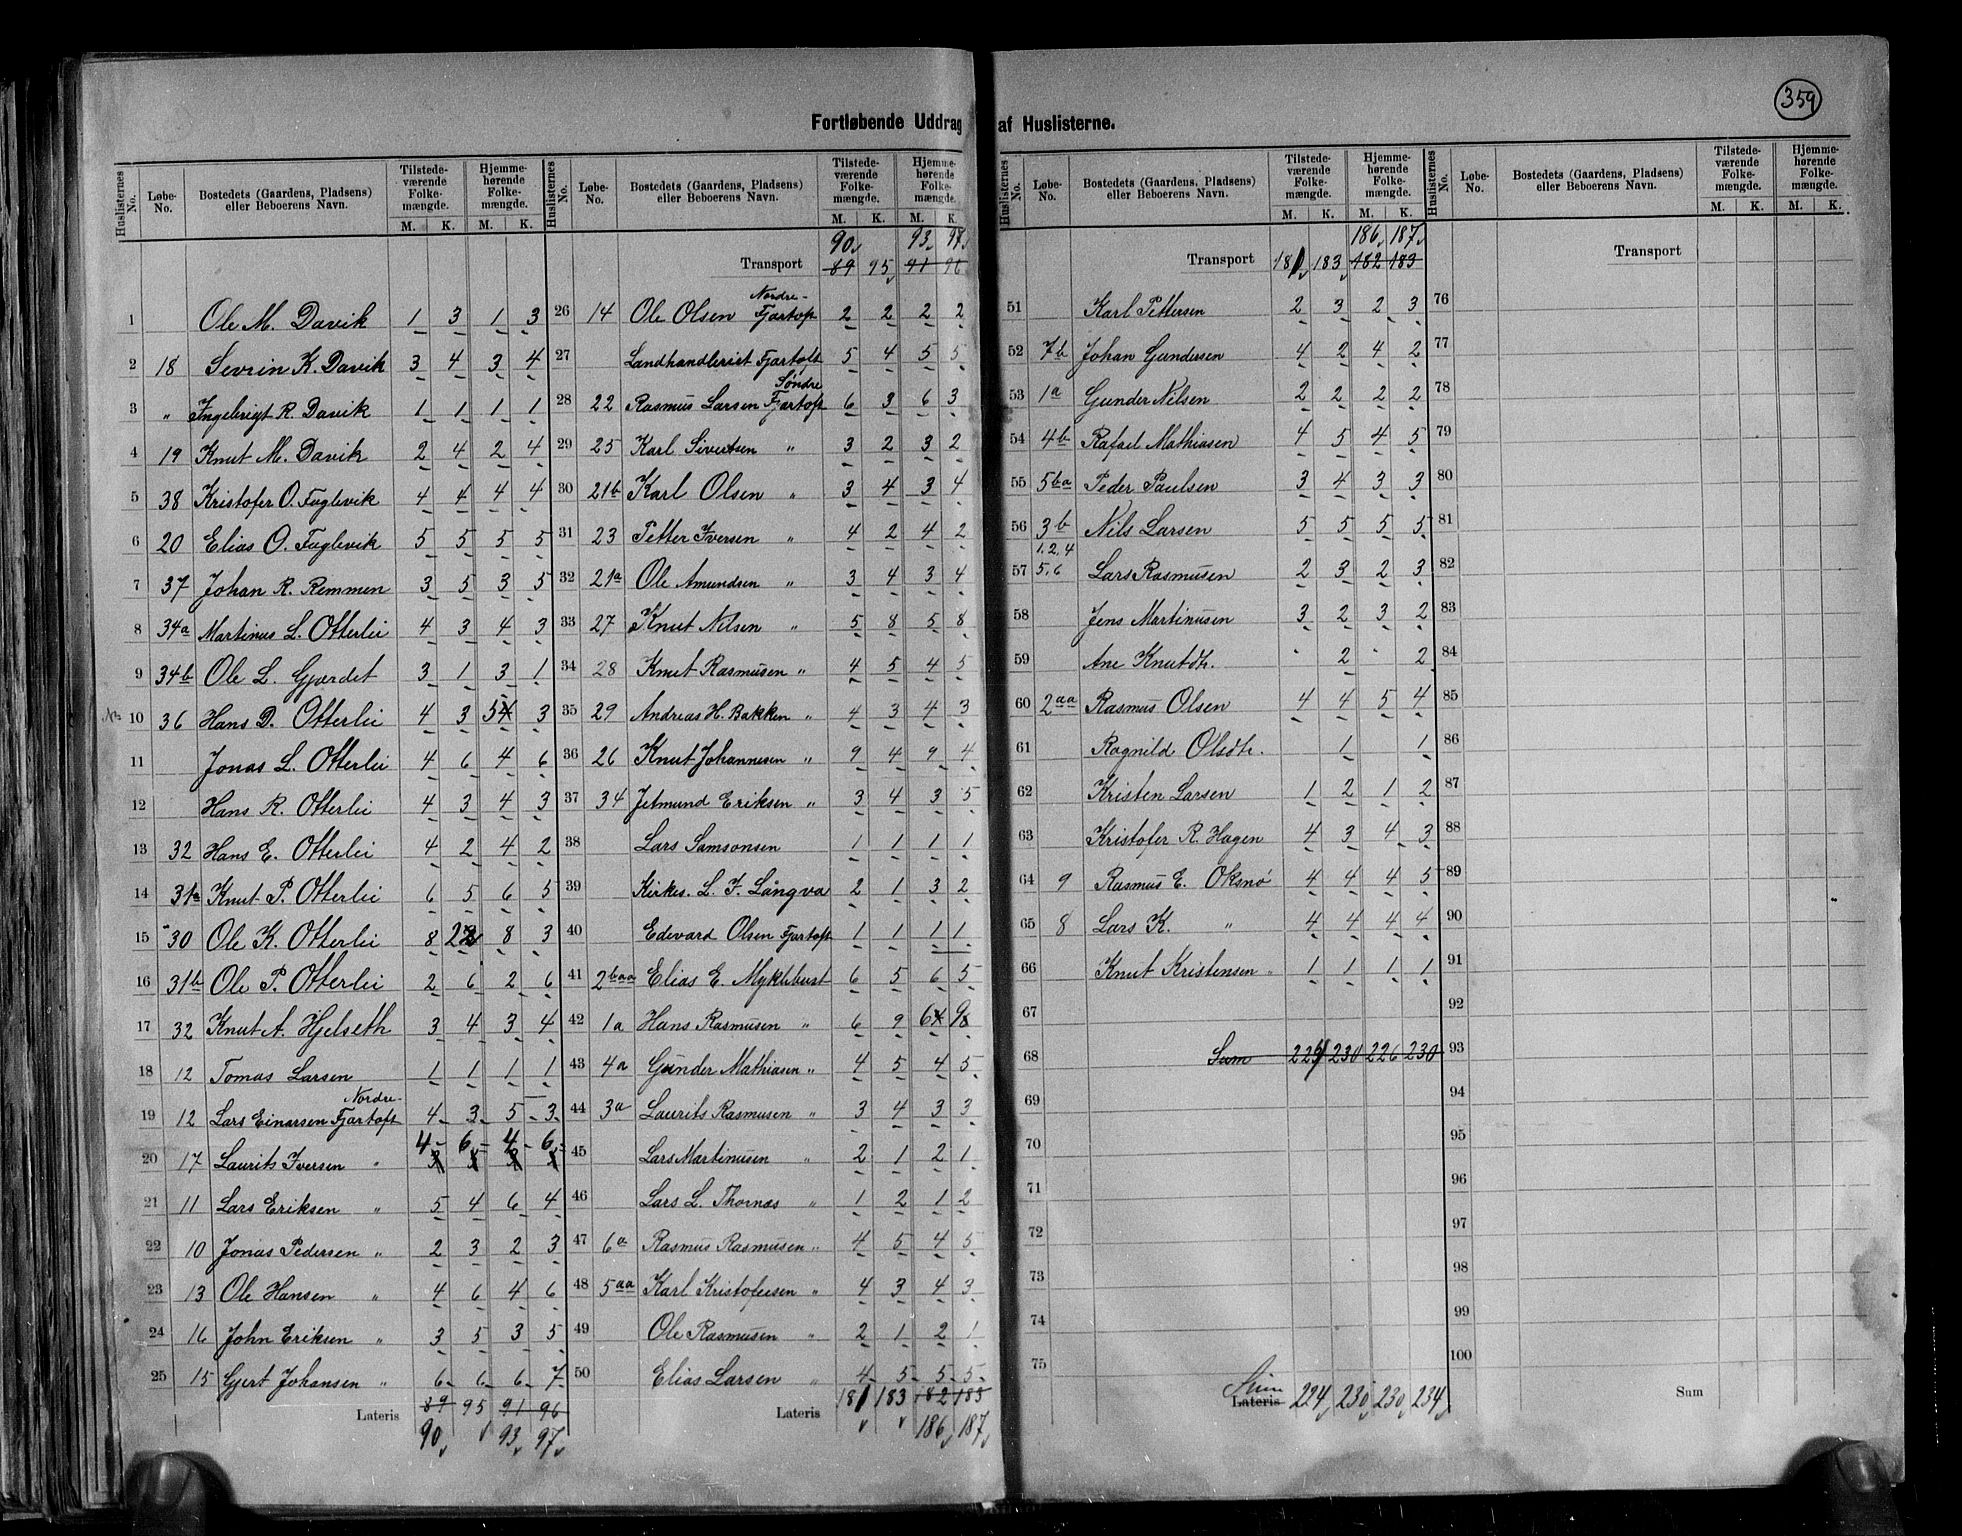 359
Fortløbende Uddrag af Huslisterne.
Huslisternes No. Løbe-No. Bostedets (Gaardens, Pladsens) eller Beboerens Navn. Tilstedeværende Folkemængde. M. K. Hjemmehørende Folkemængde. M. K.
1 Ole M. Davik 1 3 1 3
2 18 Sevrin K. Davik 3 4 3 4
3 " Ingebrigt R. Davik 1 1 1 1
4 19 Knut M. Davik 2 4 2 4
5 38 Kristofer O. Fuglevik 4 4 4 4
6 20 Elias O. Fuglevik 5 5 5 5
7 37 Johan R. Remmen 3 5 3 5
8 34a Martinus L. Otterlei 4 3 4 3
9 34b Ole L. Gjærdet 3 1 3 1
10 36 Hans D. Otterlei 4 3 5 3
11 Jonas L. Otterlei 4 6 4 6
12 Hans R. Otterlei 4 3 4 3
13 32 Hans E. Otterlei 4 2 4 2
14 31a Knut P. Otterlei 6 5 6 5
15 30 Ole K. Otterlei 8 2 8 3
16 31b Ole P. Otterlei 2 6 2 6
17 32 Knut A. Hjelseth 3 4 3 4
18 12 Tomas Larsen 1 1 1 1
19 12 Lars Einarsen Nordre-Fjørtoft 4 3 5 3
20 17 Laurits Iversen " 4 6 4 6
21 11 Lars Eriksen " 5 4 6 4
22 10 Jonas Pedersen " 2 3 2 3
23 13 Ole Hansen " 4 6 4 6
24 16 John Eriksen " 3 5 3 5
25 15 Gjert Johansen " 6 6 6 7
Lateris 89 95 91 96
90 93 97
Huslisternes No. Løbe-No. Bostedets (Gaardens, Pladsens) eller Beboerens Navn. Tilstedeværende Folkemængde. M. K. Hjemmehørende Folkemængde. M. K.
90 93 97
Transport 89 95 91 96
26 14 Ole Olsen Nordre-Fjørtoft 2 2 2 2
27 Landhandleriet Fjørtoft 5 4 5 5
28 22 Rasmus Larsen Søndre Fjørtoft 6 3 6 3
29 25 Karl Sivertsen " 3 2 3 2
30 21b Karl Olsen " 3 4 3 4
31 23 Petter Iversen " 4 2 4 2
32 21a Ole Amundsen " 3 4 3 4
33 27 Knut Nilsen " 5 8 5 8
34 28 Knut Rasmusen " 4 5 4 5
35 29 Andreas H. Bakken " 4 3 4 3
36 26 Knut Johannesen " 9 4 9 4
37 34 Jetmund Eriksen " 3 4 3 5
38 Lars Samsonsen 1 1 1 1
39 Kirkes. L. J. Långva 2 1 3 2
40 Edevard Olsen Fjørtoft 1 1 1 1
41 2baa Elias E. Myklebust 6 5 6 5
42 1a Hans Rasmusen " 6 9 6 9
43 4a Gunder Mathiasen " 4 5 4 5
44 3a Laurits Rasmusen " 3 4 3 3
45 Lars Martinusen " 2 1 2 1
46 Lars L. Thornæs " 1 2 1 2
47 6a Rasmus Rasmusen " 4 5 4 5
48 5aa Karl Kristofersen " 4 3 4 3
49 Ole Rasmusen " 2 1 2 1
50 Elias Larsen " 4 5 5 5
Lateris 181 183 182 183
186 187
Huslisternes No. Løbe-No. Bostedets (Gaardens, Pladsens) eller Beboerens Navn. Tilstedeværende Folkemængde. M. K. Hjemmehørende Folkemængde. M. K.
186 187
Transport 181 183 182 183
51 Karl Pettersen 2 3 2 3
52 7b Johan Gundersen 4 2 4 2
53 1a Gunder Nilsen 2 2 2 2
54 4b Rafael Mathiasen 4 5 4 5
55 5ba Peder Paulsen 3 4 3 3
56 3b Nils Larsen 5 5 5 5
57 1,2,4 5,6 Lars Rasmusen 2 3 2 3
58 Jens Martinusen 3 2 3 2
59 Ane Knutdtr. " 2 " 2
60 2aa Rasmus Olsen 4 4 5 4
61 Ragnild Olsdtr. 1 1
62 Kristen Larsen 1 2 1 2
63 Kristofer R. Hagen 4 3 4 3
64 9 Rasmus E. Oksnø 4 4 4 5
65 8 Lars K. " 4 4 4 4
66 Knut Kristensen " 1 1 1 1
67
68 Sum 224 230 226 230
69
70
71
72
73
74
75
Sum
Lateris 224 230 230 234
Huslisternes No. Løbe-No. Bostedets (Gaardens, Pladsens) eller Beboerens Navn. Tilstedeværende Folkemængde. M. K. Hjemmehørende Folkemængde. M. K.
Transport
76
77
78
79
80
81
82
83
84
85
86
87
88
89
90
91
92
93
94
95
96
97
98
99
100
Sum